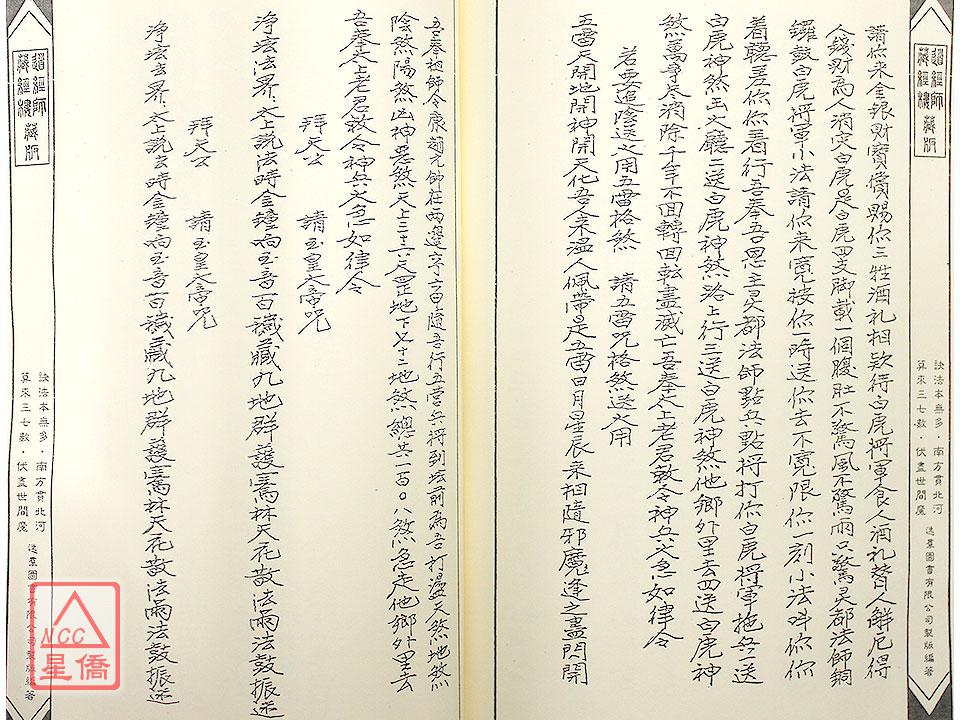 道經師
藏經樓
藏版
訣法本無多·南方貫北河
算來三七數·伏盡世間魔
逸羣圖書有限公司製版編著
請你來金銀財寶賞賜你三牲酒礼相欵待白虎將軍食人酒礼替人解厄得
人錢財為人消灾白虎是白虎四支脚載一個腹肚不驚風不驚雨只驚灵都法師銅
鑼鼓白虎將軍小法請你來寬按你一時送你去不寬限你一刻小法叫你你
着聽差你你着行吾奉吾恩主灵都法師點兵點將打你白虎將軍拖 一送
白虎神煞王火廳二送白虎神煞路上行三送白虎神煞他鄉外里去四送白虎神
煞萬爭尽消除千年不回轉回転盡滅亡吾奉太上老君敕令神兵火急如律令
若要進陰送之用五雷格煞　請五雷咒格煞送之用
五雷天開地開神開天化吾今來温人佩帶是五雷日月星辰来相隨邪魔逢之盡閃開
吾奉祖師令康趙元帥在両邊 隨吾行五营兵将到坛前為吾打盪天煞地煞
陰煞陽煞凶神惡煞天上三十六天罡地下七十二地煞總共一百０八煞急走他鄉外里去
吾奉太上老君敕令神兵火急如律令
拜天公　請玉皇大帝咒
净坛法界：太上説法時金鐘响玉音百穢藏九地群護騫林天花散法雨法鼓振迷
拜天公　請玉皇大帝咒
净坛玄界：太上説法時金鐘响玉音百穢藏九地群護騫林天花散法雨法鼓振迷
道經師
藏經樓
藏版
訣法本無多·南方貫北河
算來三七數·伏盡世間魔
逸羣圖書有限公司製版編著
NCC
星僑